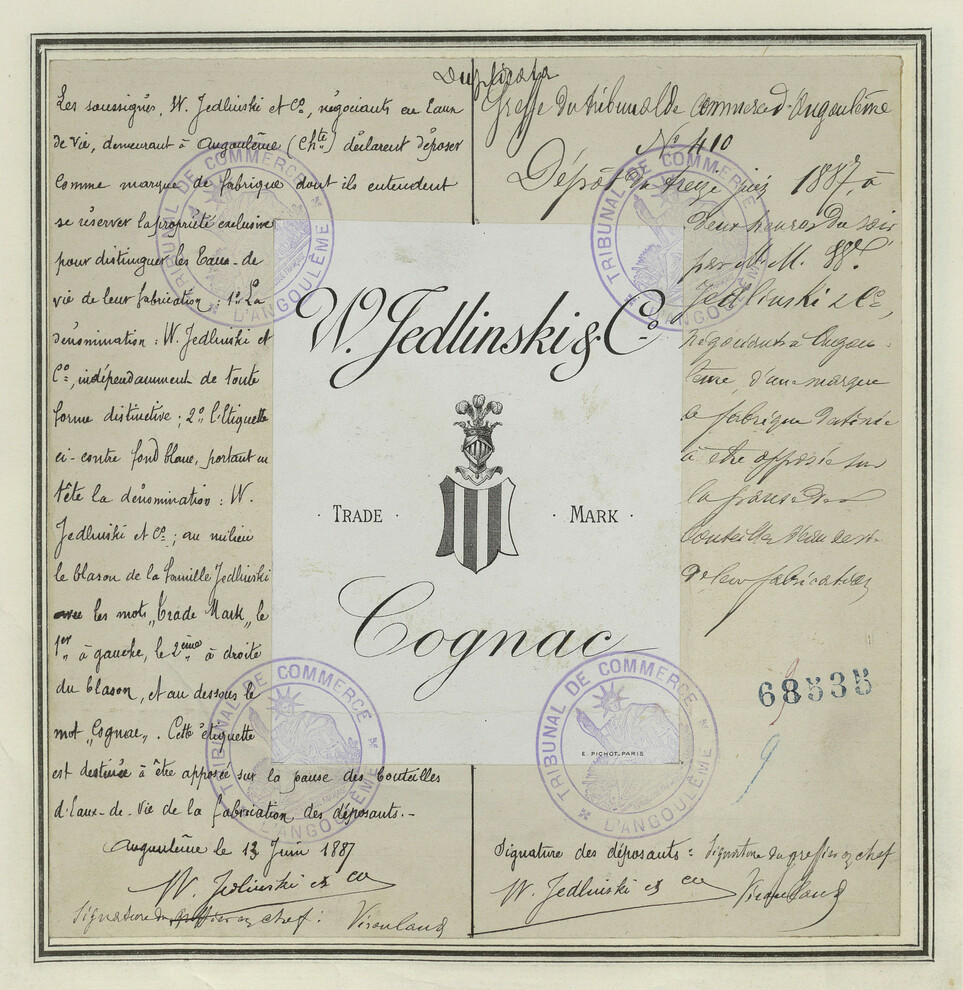 Duplicata
Les soussignés, W. Jedlinski et Cº, négociants en Eaux
de vie, demeurant à Angoulême (Chte) déclarent déposer
comme marque de fabrique dont ils entendent
se réserver la propriété exclusive
pour distinguer les Eaux-de
vie de leur fabrication : 1º La
dénomination : W. Jedlinski et
Cº, indépendamment de toute
forme distinctive ; 2º l'Etiquette
ci-contre fond blanc, portant en
tête la dénomination : W.
Jedlinski et Cº ; au milieu
le blason de la famille Jedlinski
avec les mots „Trade Mark„ le
1er à gauche, le 2ème à droite
du blason, et au dessous le
mot „Cognac„. Cette étiquette
est destinée à être apposée sur la panse des bouteilles
d'Eaux-de-Vie de la fabrication des déposants.-
Angoulême le 13 Juin 1887
W. Jedlinski et Co
Signature du greffier en chef :
Greffe du tribunal de commerce d'Angoulême
Nº 410
Dépôt du treize juin 1887, à
deux heures du soir
par M.M. W.
Jedlinski & Cº,
négociants à Angou-
lême, d'une marque
de fabrique destinée
à être apposée sur
la panse des
bouteilles d'eau de vie
de leur fabrication
W. Jedlinski & Cº
TRADE MARK
Cognac
E. PICHOT, PARIS
68535
9
Signature des déposants : Signature du greffier en chef
W. Jedlinski et Co
TRIBUNAL DE COMMERCE D'ANGOULÊME
TRIBUNAL DE COMMERCE D'ANGOULÊME
TRIBUNAL DE COMMERCE D'ANGOULÊME
TRIBUNAL DE COMMERCE D'ANGOULÊME